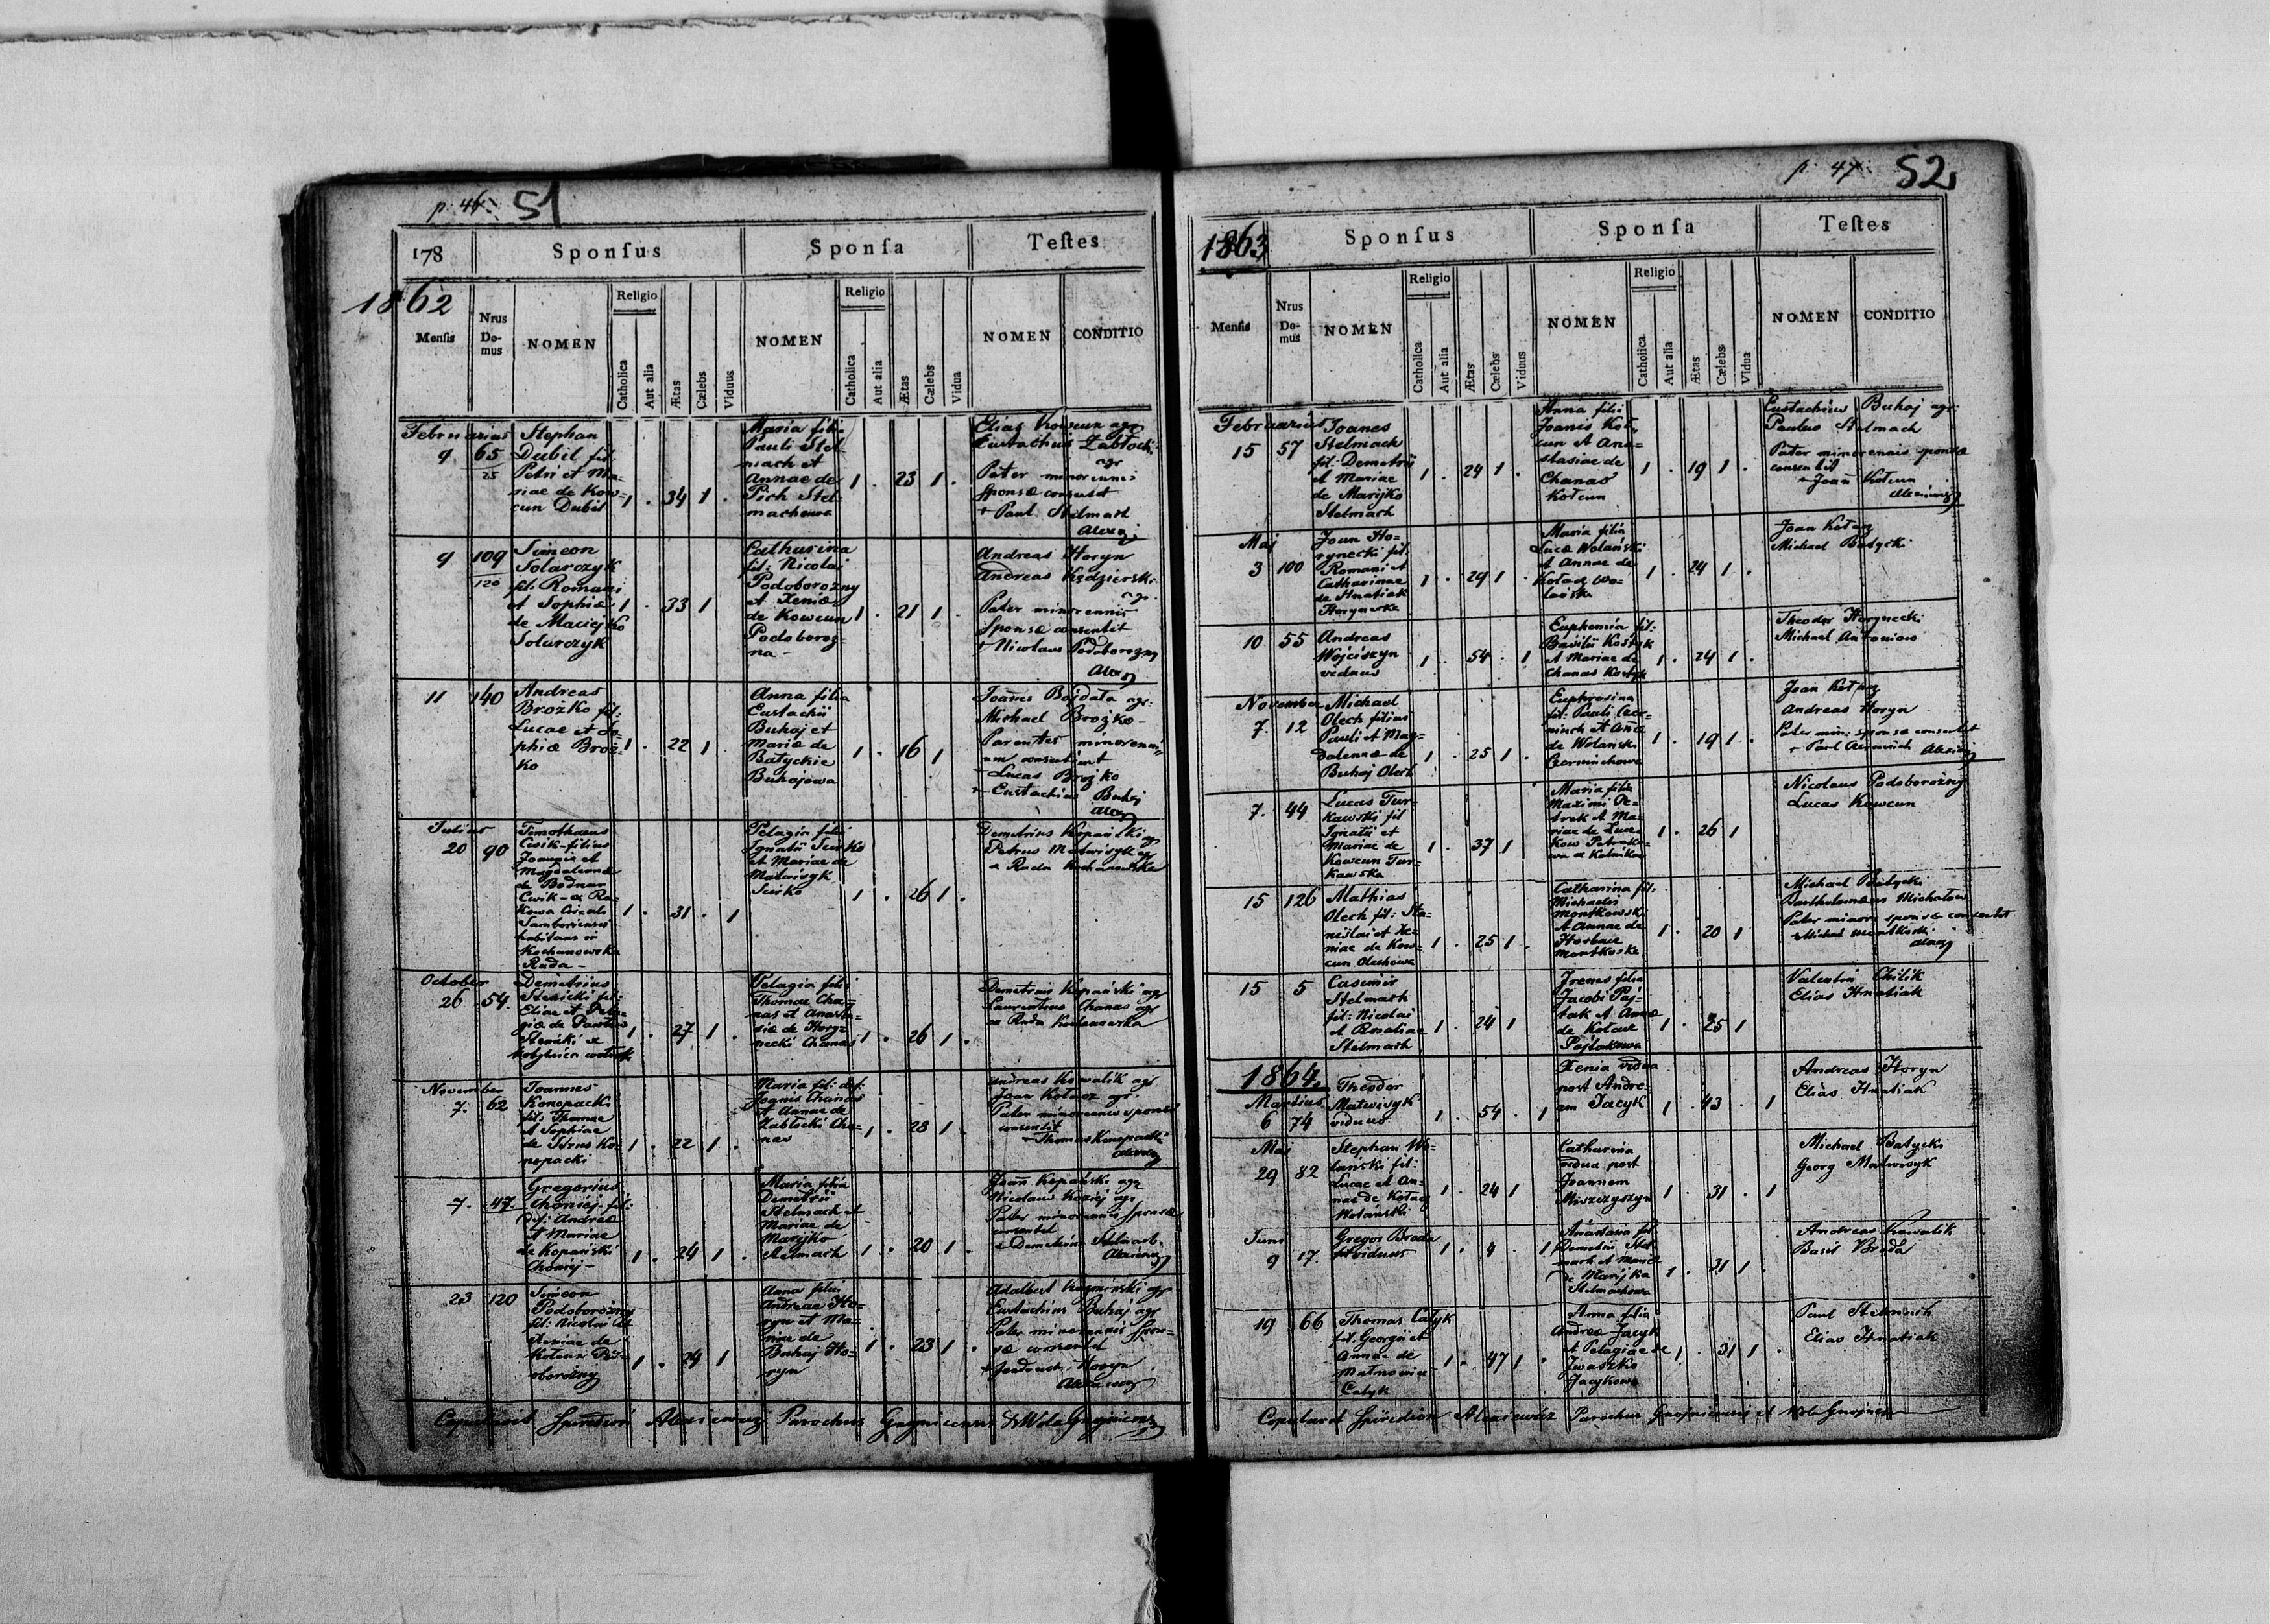 p. 46. 51
178 Sponſus Sponſa Teſtes
1862
Menſis Nrus Domus NOMEN Religio Catholica Aut alia Ætas Cælebs Viduus NOMEN Religio Catholica Aut alia Ætas Cælebs Vidua NOMEN CONDITIO
Februarius
9 65
25
Stephan
Dubil fil:
Petri et Ma-
riae de Kow-
cun Dubil
1 . 34 1 .
Maria filia
Pauli Stel
mach et
Annae de
Pich Stel-
machowa
1 . 23 1 .
Elias Kowcun agr
Eustachius Zabłocki
agr
Pater minorennis
Sponsæ consentit
+ Paul Stelmach
9 109
120
Simeon
Solarczyk
fil: Romani
et Sophiæ
de Maciejko
Solarczyk
1 . 33 1
Catharina
fil: Nicolai
Podoborozny
et Xeniæ
de Kowcun
Podoboroz-
na -
1 . 21 1 .
Andreas Horyn
Andreas Kędzierski
agr.
Pater minorennis
Sponsæ consentit
+ Nicolaus Podoborozny
11 140
Andreas
Brożko fil:
Lucae et So-
phiæ Broż-
ko
1 . 22 1
Anna filia
Eustachii
Buhaj et
Mariæ de
Batyckie
Buhajowa
1 . 16 1
Joannes Bojdała agr:
Michael Brożko -
Parentes minorenni-
um consentiunt
+ Lucas Brożko
+ Eustachius Buhaj
Julius
20 90
Timothaeus
Cwik - filius
Joannis et
Magdalenæ
de Bodnar
Cwik - ex Ra-
kowa Circuli
Samboriensis
habitans in
Kochanowska
Ruda -
1 . 31 . 1
Pelagia filia
Ignatii Surko
et Mariae de
Matwisyk
Surko
1 . 26 1 .
Demetrius Kopański agr
Petrus Matwisyk agr
a Ruda Kochanowska
October
26 54.
Demetrius
Stenicki fil:
Eliae et Pela-
giæ de Pawłow
Stenicki ex
1 . 27 1 .
Pelagia filia
Thomae Cha-
nas et Anasta-
siæ de Hory-
necki Chanas
1 . 26 1 .
Demetrius Kopański agr
Laurentius Chanas agr
ex Ruda Kochanowska
November
7. 62
Joannes
Konopacki
fil: Thomae
et Sophiae
de Turus Ko-
nopacki
1 . 22 1 .
Maria fil: def:
Joannis Chanas
et Annae de
Zabłocki Cha-
nas
1 . 28 1 .
Andreas Kowalik agr
Joan Kołacz agr.
Pater minorennis sponsi
consentit
+ Thomas Konopacki
7. 47.
Gregorius
Chomiej fil:
def: Andreæ
et Mariae
de Kopański
Chomiej -
1 . 24 1 .
Maria filia
Demetrii
Stelmach et
Mariae de
Marijko
Stelmach
1 . 20 1 .
Joann Kopański agr
Nicolaus Koziej agr
Pater minorennis sponsæ
consentit
+ Demetrius Stelmach
23 120
Simeon
Podoborozny
fil: Nicolai et
Xeniae de
Kołcun Po-
doborozny
1 . 24 1
Anna filia
Andreae Ho-
ryn et Ma-
riae de
Buhaj Ho-
ryn
1 . 23 1 .
Adalbert Kuzminski agr
Eustachius Buhaj agr
Pater minorennis Spon-
sæ consentit
+ Andreas Horyn
Copulavit Spiridion Alexiewicz Parochus Gnojnicensis & Wola Gnojnicens
p. 47. 52
1863 Sponſus Sponſa Teſtes
Menſis Nrus Domus NOMEN Religio Catholica Aut alia Ætas Cælebs Viduus NOMEN Religio Catholica Aut alia Ætas Cælebs Vidua NOMEN CONDITIO
Februarius
15 57
Joanes
Stelmach
fil: Demetrii
et Mariae
de Marijko
Stelmach
1 . 24 1 .
Anna filia
Joanis Koł-
cun et Ana-
stasiae de
Chanas
Kołcun
1 . 19 1 .
Eustachius Buhaj agr:
Paulus Stelmach
Pater minorennis sponsæ
consentit
+ Joan Kołcun
Maj
3 100
Joan Ho-
rynecki fil:
Romani et
Catharinae
de Hnatiak
Horynecka
1 . 29 1 .
Maria filia
Lucæ Wolański
et Annae de
Kołacz Wo-
lańska
1 . 24 1 .
Joan Kołacz
Michael Batycki
10 55
Andreas
Wojciszyn
viduus
1 . 54 . 1
Euphemia fil:
Basilii Kostyk
et Mariae de
Chanas Kostyk
1 . 24 1 .
Theodor Horynecki
Michael Antoniow
November
7. 12
Michael
Olech filius
Pauli et Mag-
dalenae de
Buhaj Olech
1 . 25 1 .
Euphrosina
fil: Pauli Czer-
minch et Annæ
de Wolańska
1 . 19 1 .
Joan Kołacz
Andreas Horyn
Pater min: sponsæ consentit
7. 44
Lucas Tur-
kawski fil
Ignatii et
Mariae de
Kowcun Tur-
kawska
1 . 37 1
Maria filia
Maximi Pe-
trek et Ma-
riae de
1 . 26 1
Nicolaus Podoborożny
Lucas Kowcun
15 126
Mathias
Olech fil: Sta-
nislai et Xe-
niae de Kow-
cun Olechowa
1 . 25 1 .
Catharina fil:
Michaelis
Montkowski
et Annae de
Horbacz
Montkoska
1 . 20 1
Michael Batycki
Bartholomaeus Michałow
Pater minor: sponsæ consentit
+ Michael Montkoski
15 5
Casimir
Stelmach
fil: Nicolai
et Rosaliae
Stelmach
1 . 24 1
Irenes filia
Jacobi Paj-
tak et Annæ
de Kołacz
Pajtakowa
1 . 25 1
Valentin Chilik
Elias Hnatiak
1864.
Martius
6 74
Theodor
Matwisyk
viduus
1 . 54 . 1
Xenia vidua
post Andre-
am Jacyk
1 . 43 . 1
Andreas Horyn
Elias Hnatiak
Maj
29 82
Stephan Wo-
lański fil:
Lucae et An-
nae de Kołacz
Wolański
1 . 24 1
Catharina
vidua post
Joannem
Miszczyszyn
1 . 31 . 1
Michael Batycki
Georg Matwisyk
Juni
9 17.
Gregor Broda
viduus
1 . 4 . 1
Anastasia fil
Demetrii Stel-
mach et Mariæ
de Marijka
Stelmachowa
1 . 31 1 .
Andreas Kowalik
Basil Broda
19 66
Thomas Catyk
fil: Georgii et
Annae de
Catyk
1 . 47 1 .
Anna filia
Andreæ Jacyk
et Pelagiae de
Iwaszko
Jacykowa
1 . 31 1 .
Paul Stelmach
Elias Hnatiak
Copulavit Spiridion Alexiewicz Parochus Gnojnicensis et Wola Gnojnice